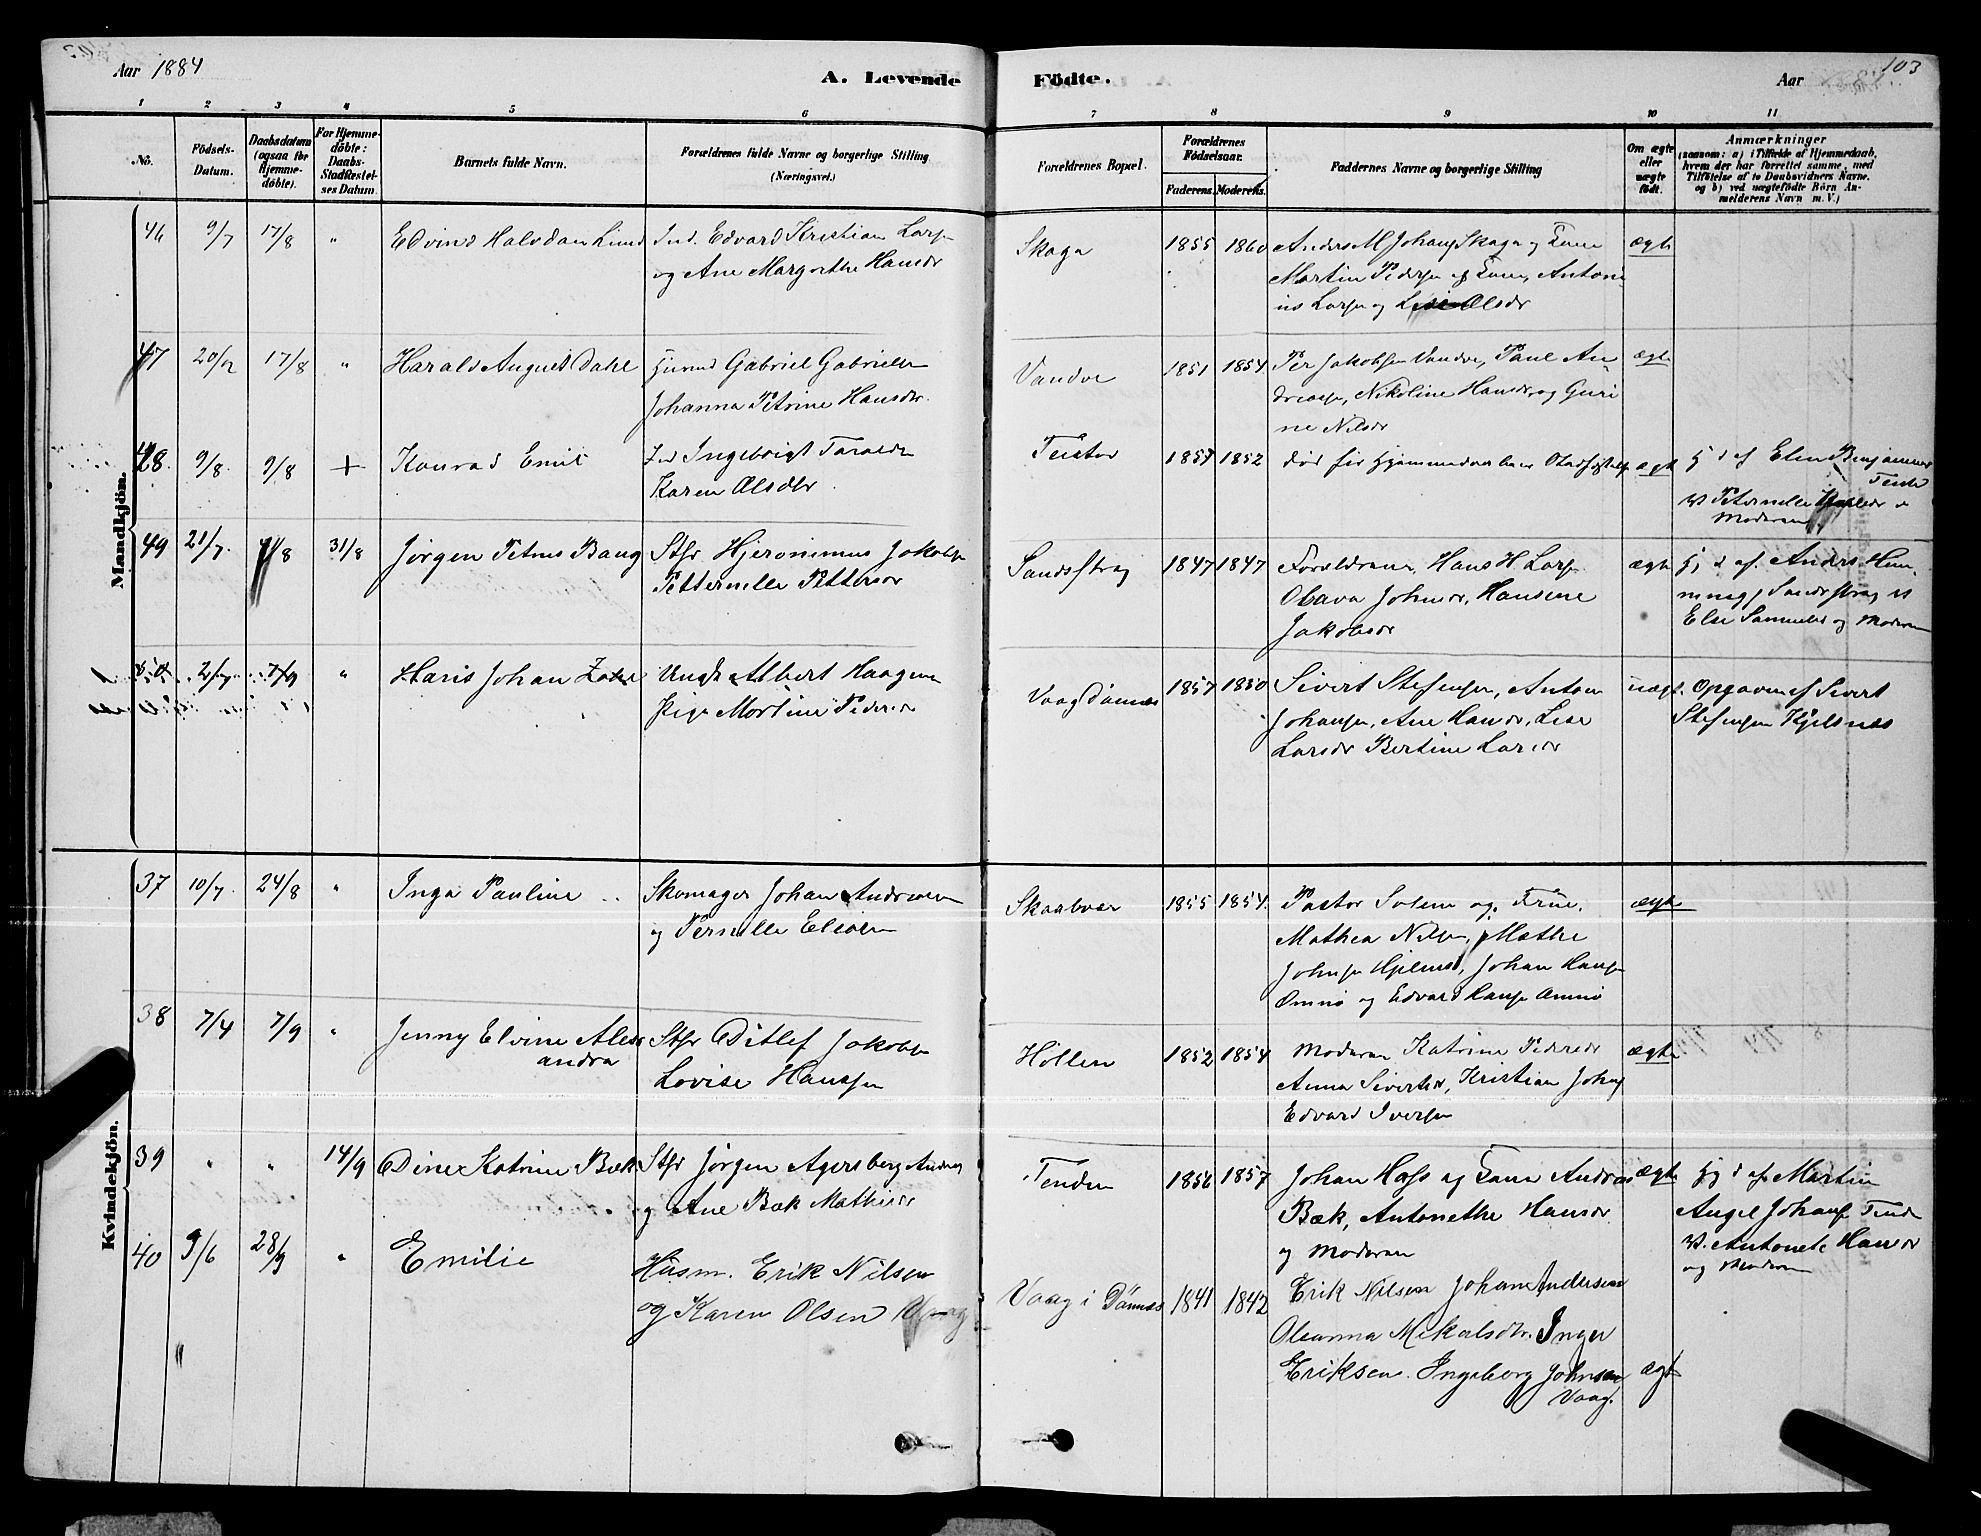 Aar 1884
A. Levende
Födte.
Aar
103
1 2 3 4 5 6 7 8 9 10 11
No.
Födsels-
Datum.
Daabsdatum
(ogsaa for
Hjemme-
döbte).
For Hjemme-
döbte:
Daabs-
Stadfæstel-
ses Datum.
Barnets fulde Navn.
Forældrenes fulde Navne og borgerlige Stilling
(Næringsvei.)
Forældrenes Bopæl.
Forældrenes
Födselsaar.
Faderens. Moderens.
Faddernes Navne og borgerlige Stilling
Om ægte
eller
uægte
födt.
Anmærkninger
(saasom: a) i Tilfælde af Hjemmedaab,
hvem der har forrettet samme, med
Tilföielse af to Daabsvidners Navne.
og b) ved uægtefödte Börn An-
melderens Navn m. V.)
Mandkjön.
46 9/7 17/8 " Edvind Halvdan Lund Ind. Edvard Kristian Larsen
og Ane Margrethe Hansdr
Skaga 1855 1860 Anders M Johans Skaga og Kone
Martin Pedersen og Kone, Anton
ius Larsen og Olsdr
ægte
47 20/2 17/8 " Harald August Dahl Gabriel Gabrielsen
Johanna Petrine Hansdr.
Vandve 1851 1854 Per Jakobsen Vandve, Paul An
dreasen, Nikoline Hansdr og Guri
ne Nilsdr
ægte
48. 9/8. 9/8 + Konrad Emil Ingebrigt
Karen Olsdtr.
Teistov 1857 1852 død før Hjemmedaaben Stadfæstelse ægte Hj d af Elen Benjamins
Teistov
Moderen
49 21/7. 31/8 Jørgen Petrus Baug Stfr Hjeronimus Jakobsen
Petternille Pettersdr
Sandstrag 1847 1847 Forældrene, Hans H Larsen
Olava Johnsdr, Hansine
Jakobsdr
ægte Hj d af. Anders Hem
mings Sandstrag
Else Samuelsd og Moderen
50 2/7 7/9 " Hans Johan Zahl Ungk Albert Haagen
Pige Martine Pedersdr
Vaag Dønnes 1857 1850 Sivert Stefensen, Anton
Johansen, Ane Hansdr, Lise
Larsdr Bertine Larsdr
uægt. Opgaven af Sivert
Stefensen Hjelsnes
Kvindekjön.
37 10/7. 24/8 " Inga Pauline Skomager Johan Andreasen
og Pernille Eliasen
Skaalvær 1855 1854. Pastor Solem og Frue.
Mathea Nilsen, Mathe
Johnsen, Johan Hansen
Omnø og Edvard Hansen Omnø
ægte
38 7/4 7/9 " Jenny Elvine Alex
andra
Stfr Ditlef Jakobsen
Lovise Hanssen
Høllen 1852 1854 Moderen Katrine Pedersdr
Anna Sivertsdr, Kristian Johns
Edvard Iversen
ægte
39 " " 14/9 Dine Katrine Bæk Stfr Jørgen Agersberg Andreas
og Ane Bæk Mathisdr
Tenden 1856 1857 Johan Hass og Kone Andreas
Bæk, Antonethe Hansdr
og Moderen
ægte Hj d af Martin
Angel Johans
Antonete Hansdr
og Moderen
40 9/6 28/9 " Emilie Husm. Erik Nilsen
og Karen Olsen Vaag
Vaag i Dönnes 1841 1842 Erik Nilsen Johan Andersen
Oleanna Mikalsdtr. Inger
Eriksen. Ingeborg Johnsen
Vaag.
ægt